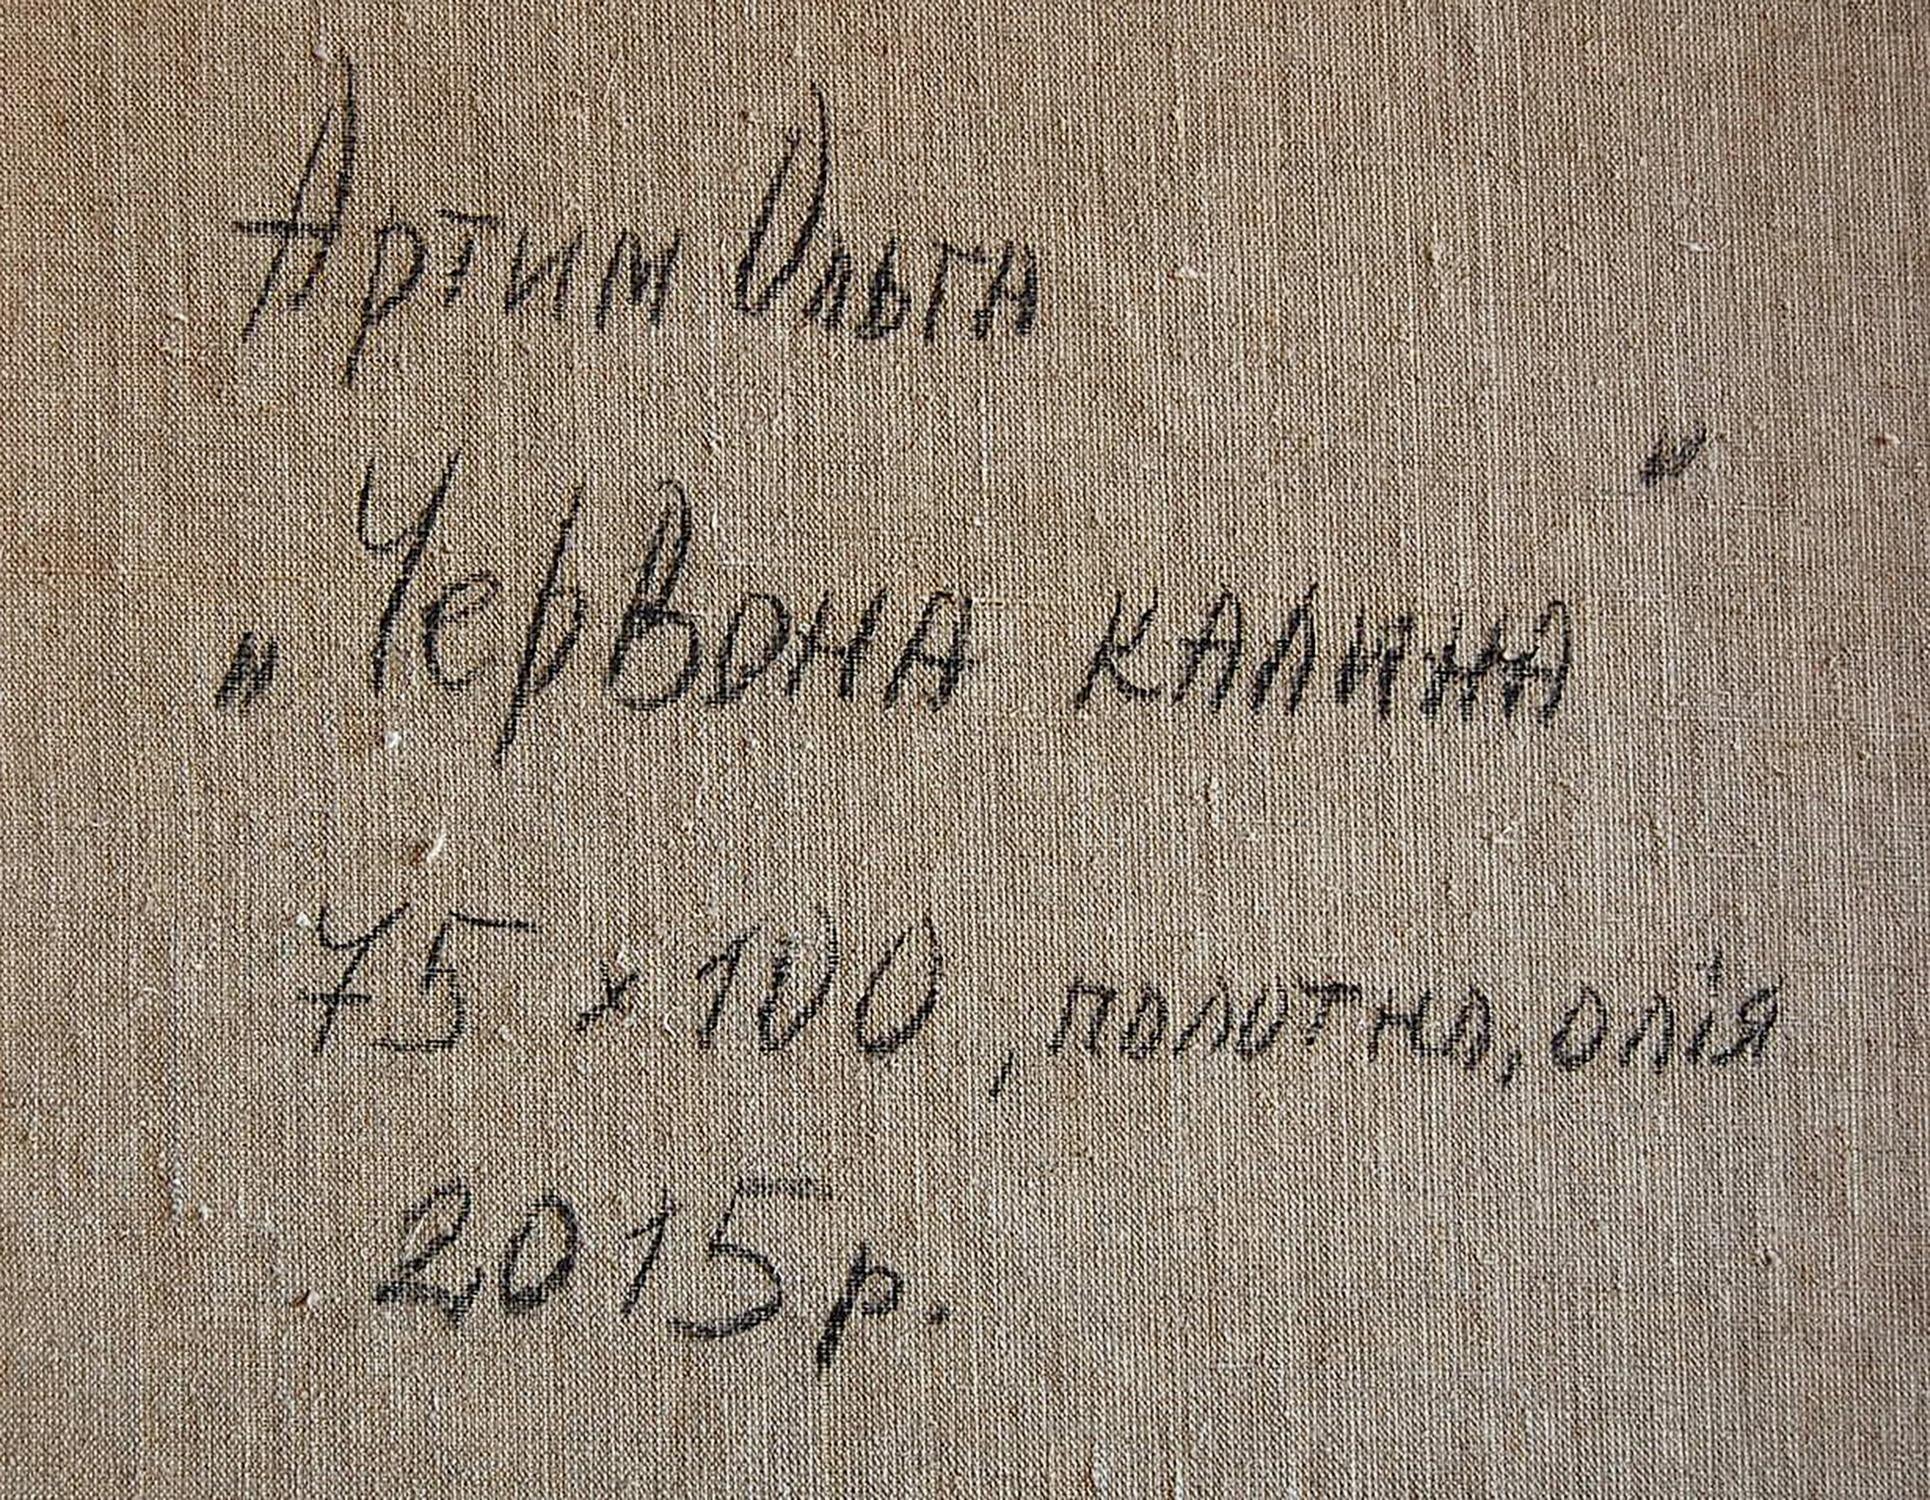 Артим Ольга
„Червона калина"
75 х 100, полотно, олія
2015 р.